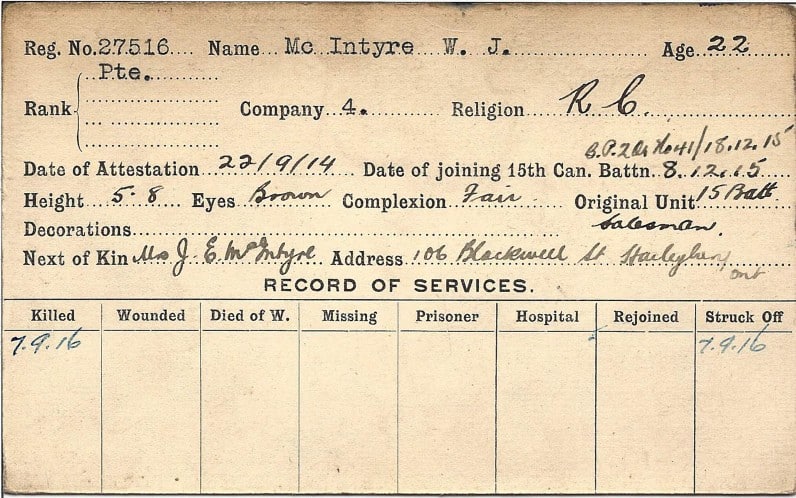 Reg. No. 27516 Name Mc Intyre W. J. Age 22
Pte.
Rank Company 4. Religion R C.
B.P.2 Or No 41/18.12.15
Date of Attestation 22/9/14 Date of joining 15th Can. Battn. 8.12.15
Height 5.8 Eyes Brown Complexion Fair Original Unit 15 Batt
Decorations Salesman.
Next of Kin Mrs J. E. McIntyre Address 106 Blackwell St Haileybury Ont
RECORD OF SERVICES.
Killed Wounded Died of W. Missing Prisoner Hospital Rejoined Struck Off
7.9.16 7.9.16